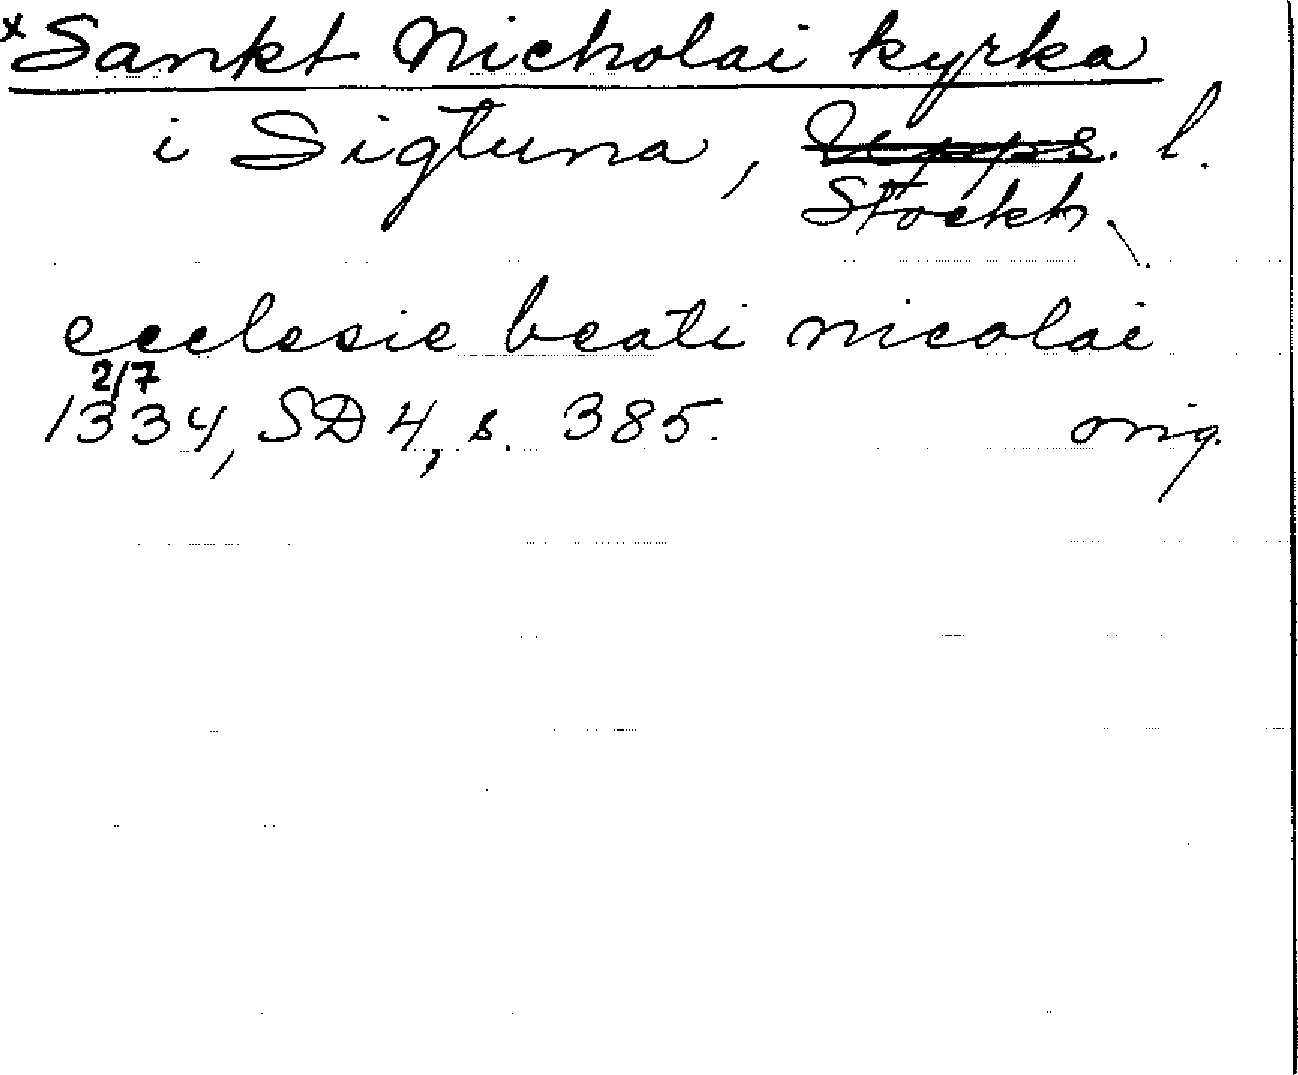 ×Sankt Nicholai kyrka
i Sigtuna, Upps. l.
Stockh.
ecclesie beati nicolai
2/7
1334, SD 4, s. 385. orig.